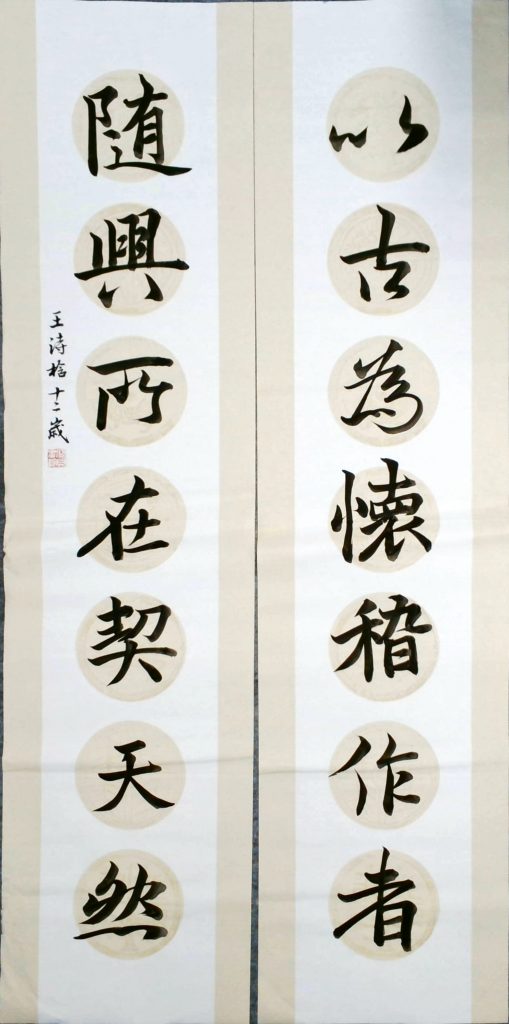 以古為懷稽作者
隨興所在契天然
王诗 十二歲